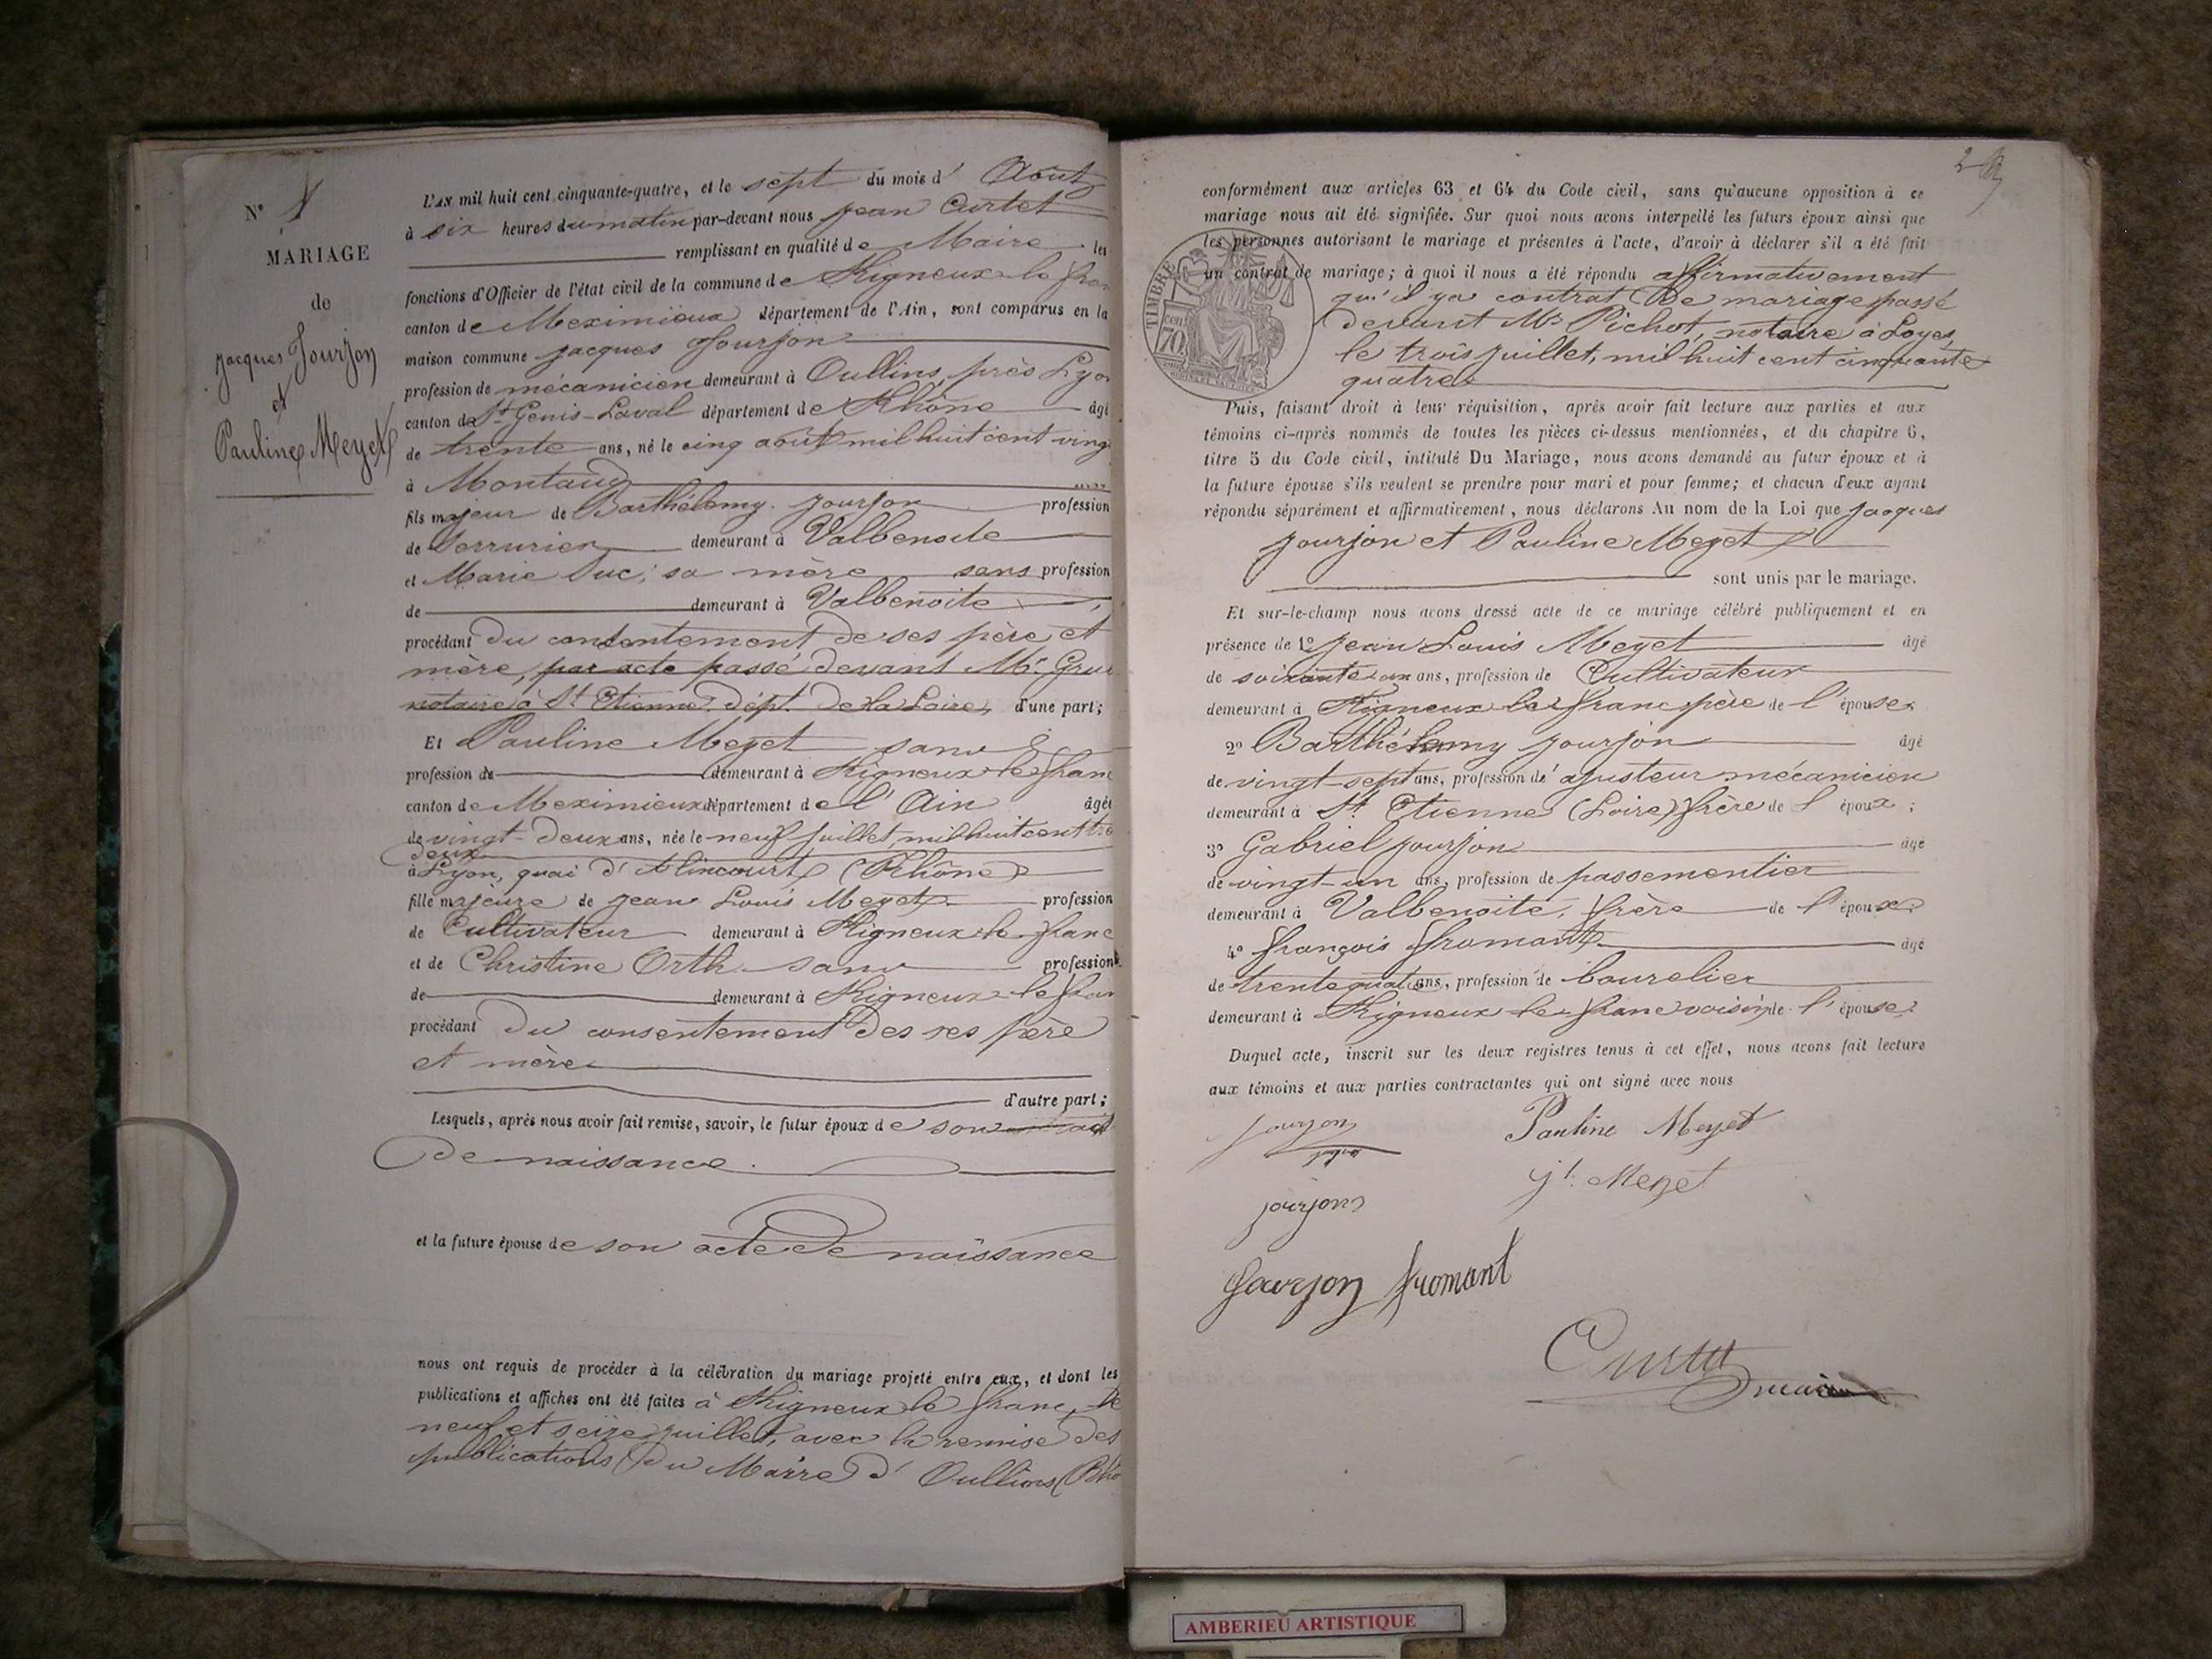 N°
MARIAGE
de
Jacques Jourjon
et
Pauline Meyet
L'AN mil huit cent cinquante-quatre, et le sept du mois d' Août
à six heures du matin par-devant nous Jean Curtet
remplissant en qualité de Maire les
fonctions d'Officier de l'état civil de la commune de Rigneux le fran
canton de Meximieux département de l'Ain, sont comparus en la
maison commune Jacques Jourjon
profession de mécanicien demeurant à Oullins, près Lyo
canton de St Genis-Laval département de Rhône âgé
de trente ans, né le cinq août mil huit cent ving
à Montaud
fils majeur de Barthélemy Jourjon profession
de Serrurier demeurant à Valbenoite
et Marie Duc, sa mère sans profession
de demeurant à Valbenoite
procédant du consentement de ses père et
mère, par acte passé devant Me
notaire à St Etienne, dépt. de la Loire, d'une part;
Et Pauline Meyet sans
profession de demeurant à Rigneux le franc
canton de Meximieux département de l'Ain âgée
de vingt-deux ans, née le neuf juillet, mil huit cent tre
deux
à Lyon, quai d'Alincourt (Rhône)
fille majeure de Jean Louis Meyet profession
de Cultivateur demeurant à Rigneux le franc
et de Christine Orth sans profession
de demeurant à Rigneux le fran
procédant du consentement des ses père
et mère
d'autre part;
Lesquels, après nous avoir fait remise, savoir, le futur époux de son act
de naissance.
et la future épouse de son acte de naissance
nous ont requis de procéder à la célébration du mariage projeté entre eux, et dont les
publications et affiches ont été faites à Rigneux le franc, le
neuf et seize juillet, avec la remise des
publications du Maire d' Oullins (Rhô
conformément aux articles 63 et 64 du Code civil, sans qu'aucune opposition à ce
mariage nous ait été signifiée. Sur quoi nous avons interpellé les futurs époux ainsi que
les personnes autorisant le mariage et présentes à l'acte, d'avoir à déclarer s'il a été fait
un contrat de mariage; à quoi il nous a été répondu affirmativement
qu'il y a contrat de mariage passé
devant Me Pichot, notaire à Loyes,
le trois juillet, mil huit cent cinquante
quatre
TIMBRE
70
Puis, faisant droit à leur réquisition, après avoir fait lecture aux parties et aux
témoins ci-après nommés de toutes les pièces ci-dessus mentionnées, et du chapitre 6,
titre 5 du Code civil, intitulé Du Mariage, nous avons demandé au futur époux et à
la future épouse s'ils veulent se prendre pour mari et pour femme; et chacun d'eux ayant
répondu séparément et affirmativement, nous déclarons Au nom de la Loi que Jacques
Jourjon et Pauline Meyet
sont unis par le mariage.
Et sur-le-champ nous avons dressé acte de ce mariage célébré publiquement et en
présence de 1° Jean Louis Meyet âgé
de soixante ans, profession de Cultivateur
demeurant à Rigneux le franc père de l'épouse
2° Barthélemy Jourjon âgé
de vingt-sept ans, profession d'ajusteur mécanicien
demeurant à St Etienne (Loire) frère de l'époux;
3° Gabriel Jourjon âgé
de vingt-un ans, profession de passementier
demeurant à Valbenoite, frère de l'époux
4° François Fromant âgé
de trente quatre ans, profession de bourelier
demeurant à Rigneux le franc voisin de l'épouse
Duquel acte, inscrit sur les deux registres tenus à cet effet, nous avons fait lecture
aux témoins et aux parties contractantes qui ont signé avec nous
Jourjon Pauline Meyet
Jl. Meyet
Jourjon
Jourjon fromant
Curtet
maire
AMBERIEU ARTISTIQUE